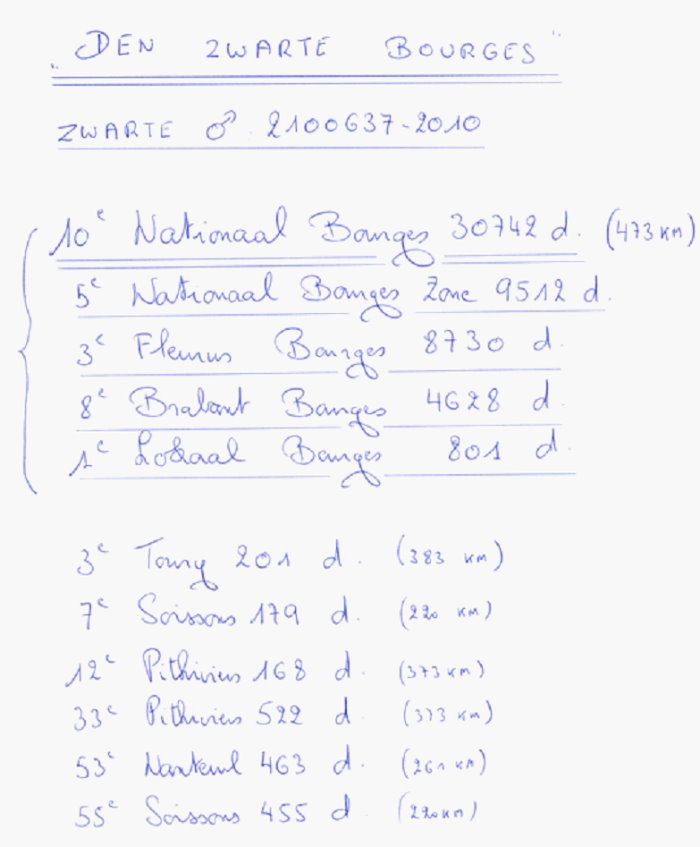 "DEN ZWARTE BOURGES"
ZWARTE ♂ 2100637-2010
10e Nationaal Bourges 30742 d. (473 KM)
5e Nationaal Bourges Zone 9512 d.
3e Fleurus Bourges 8730 d.
8e Brabant Bourges 4628 d.
1e Lokaal Bourges 801 d.
3e Toury 201 d. (383 KM)
7e Soissons 179 d. (220 KM)
12e Pithiviers 168 d. (373 KM)
33e Pithiviers 522 d (373 KM)
53e Nanteuil 463 d. (261 KM)
55e Soissons 455 d (220 KM)